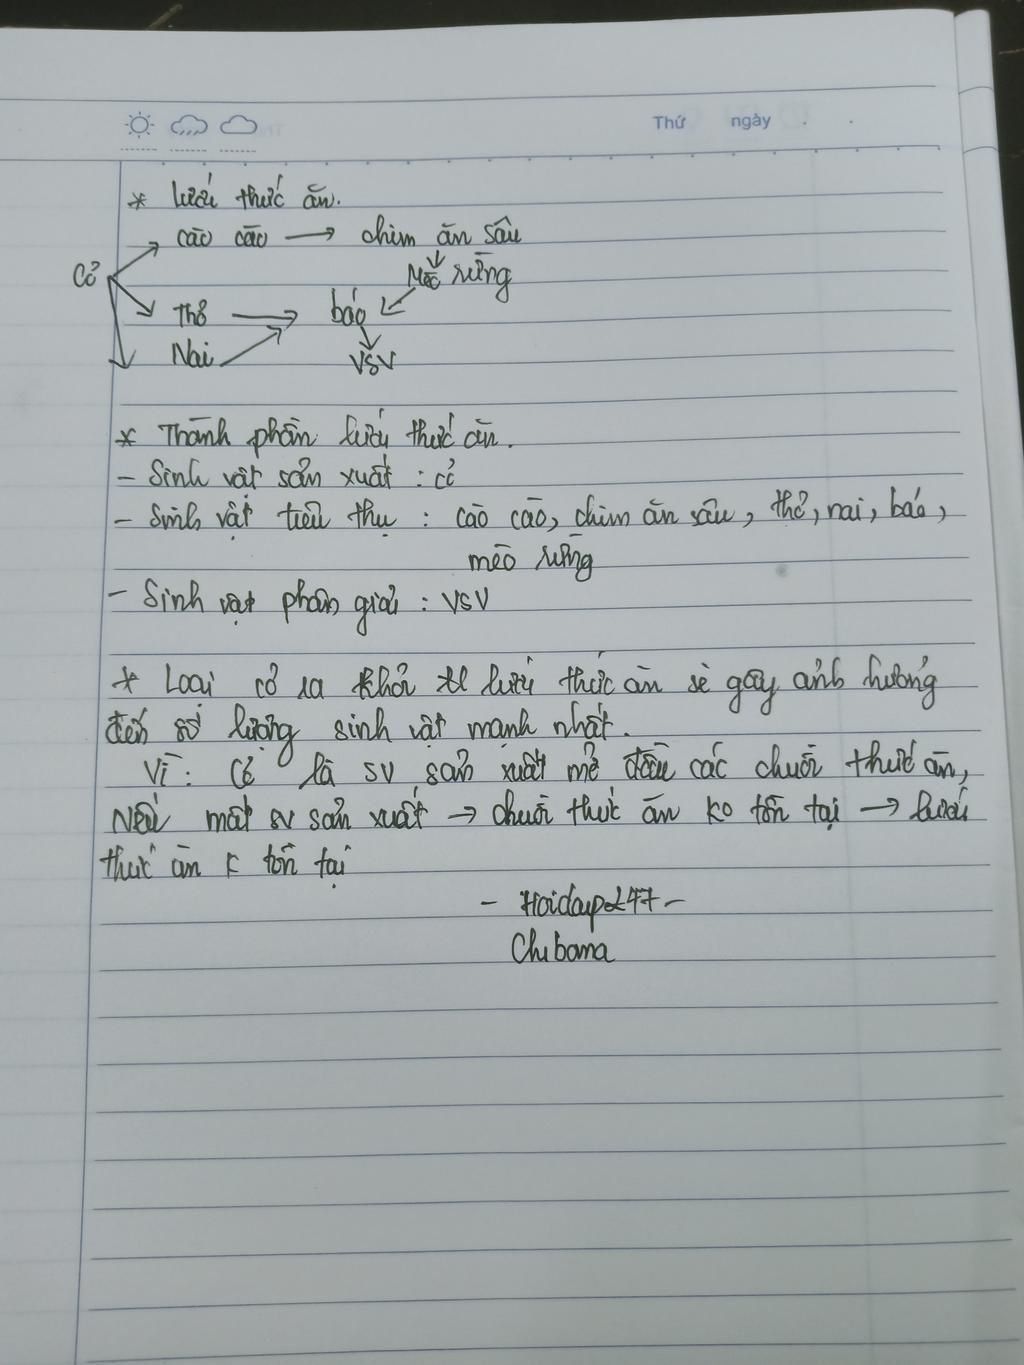 Thứ ngày
* Lưới thức ăn.
cào cào → chim ăn sâu
Cỏ Mèo rừng
Thỏ → báo
Nai VSV
* Thành phần lưới thức ăn.
- Sinh vật sản xuất : cỏ
- Sinh vật tiêu thụ : cào cào, chim ăn sâu, thỏ, nai, báo,
mèo rừng
- Sinh vật phân giải : VSV
* Loại cỏ ra khỏi lưới thức ăn sẽ gây ảnh hưởng
đến số lượng sinh vật mạnh nhất.
Vì : Cỏ là SV sản xuất mở đầu các chuỗi thức ăn,
Nếu mất SV sản xuất → chuỗi thức ăn ko tồn tại → lưới
thức ăn k tồn tại
- Hoidap247 -
Chibana